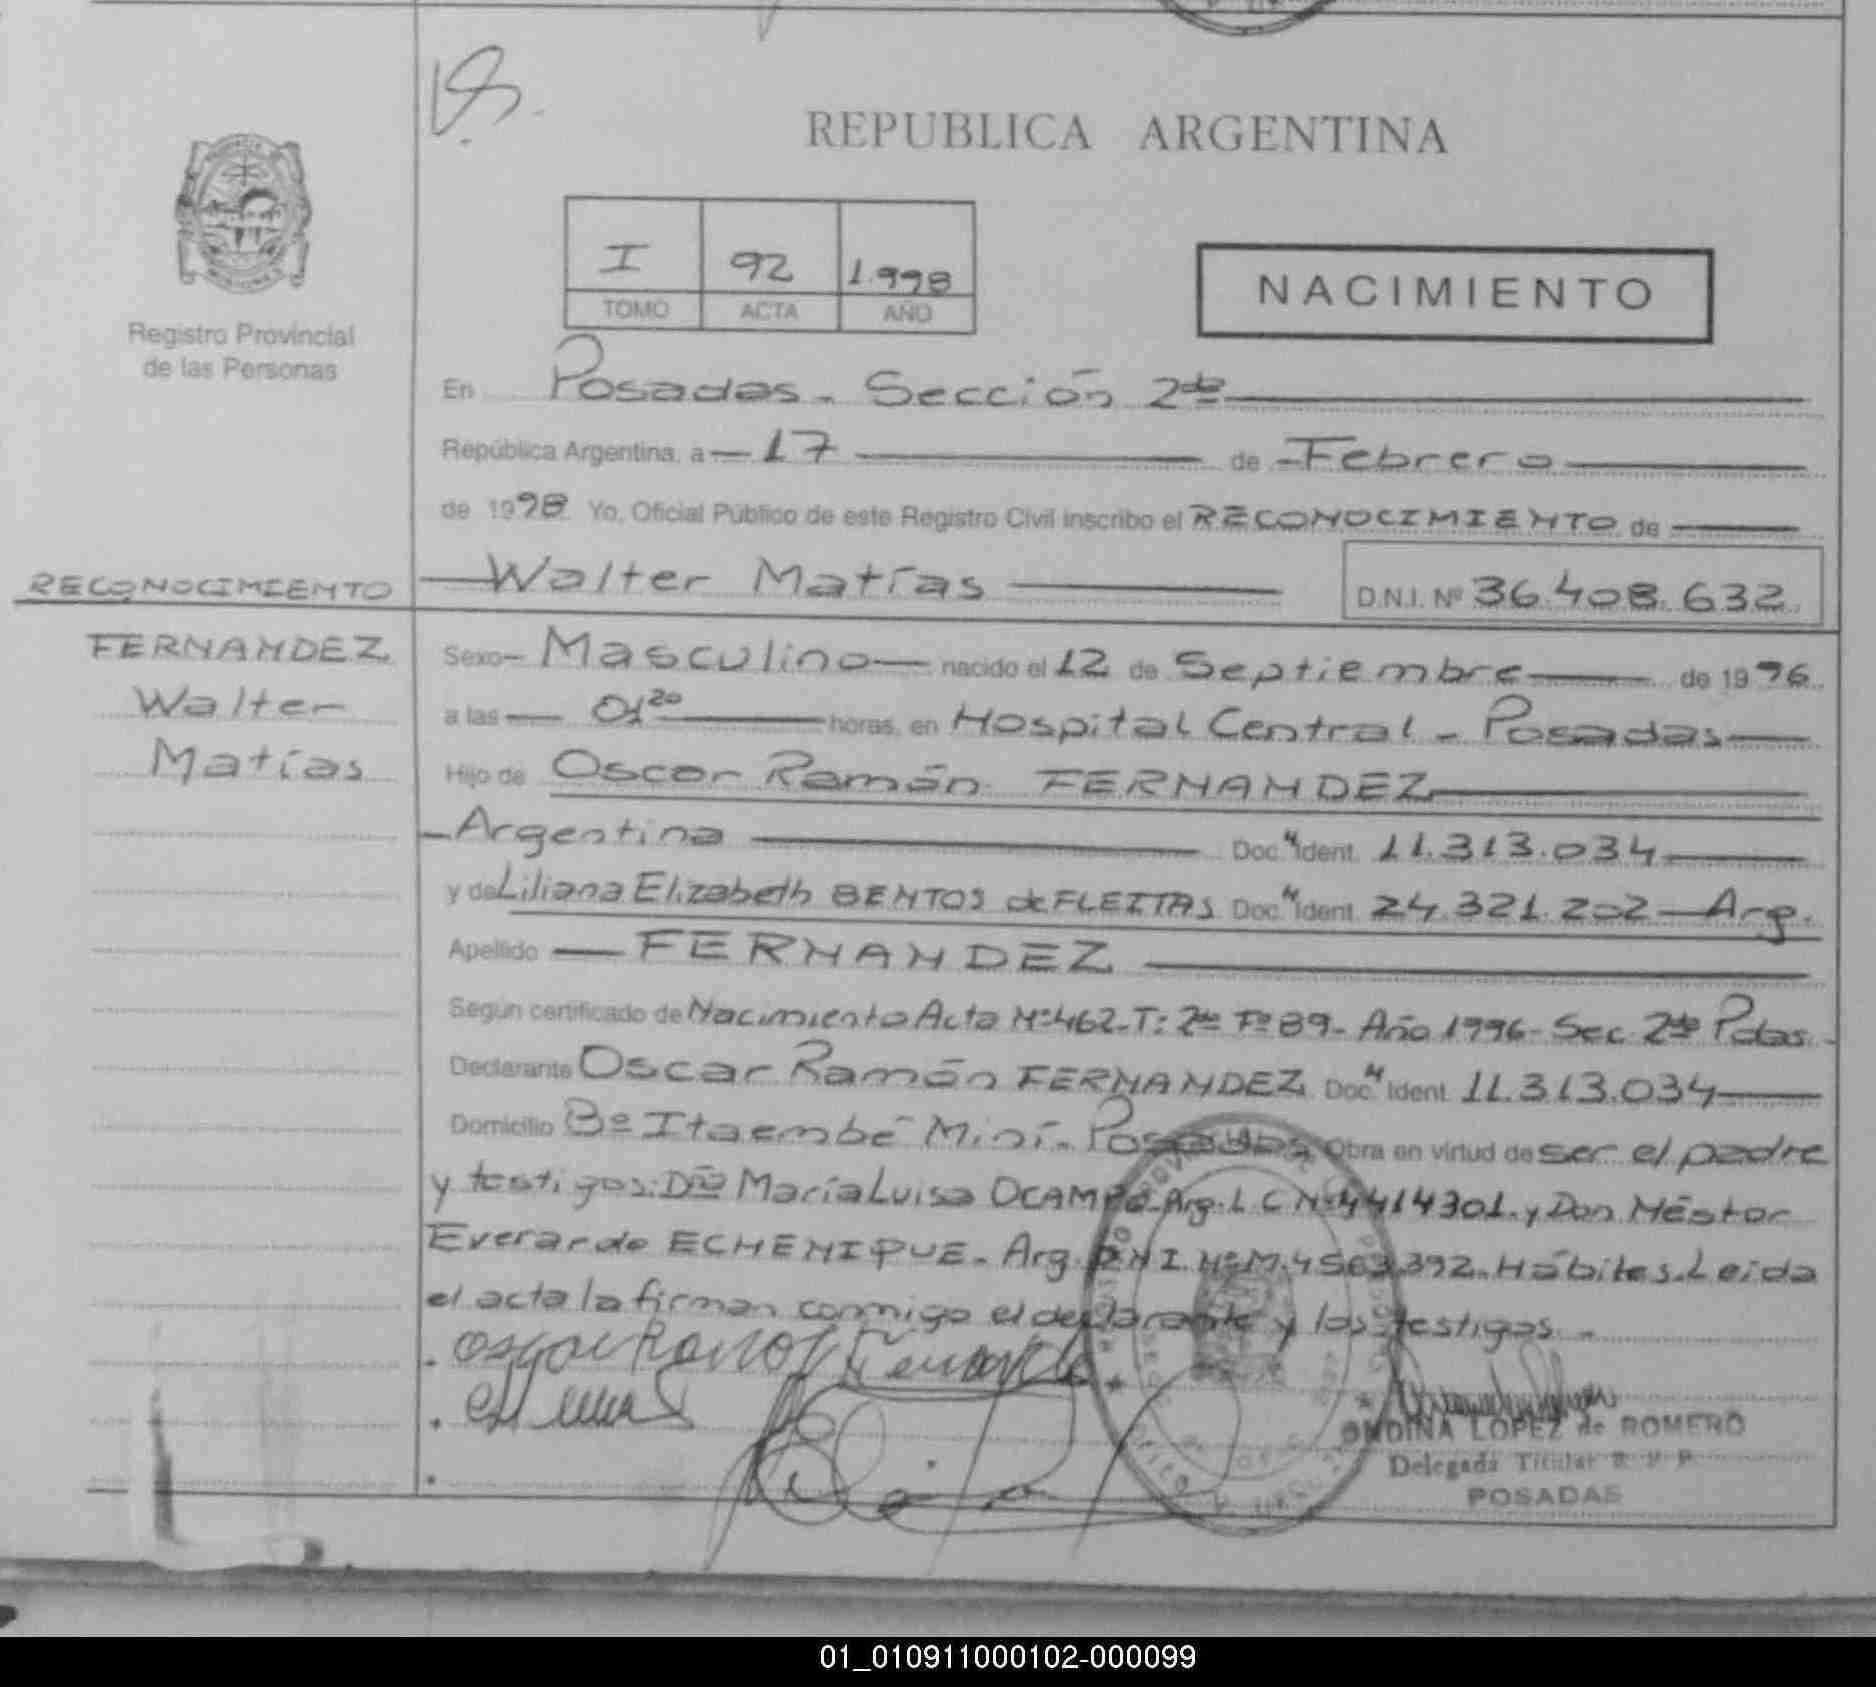 REPUBLICA ARGENTINA
I 92 1.998
TOMO ACTA AÑO
NACIMIENTO
Registro Provincial
de las Personas
En Posadas - Sección 2da
República Argentina, a 17 de Febrero
de 1998 Yo, Oficial Público de este Registro Civil inscribo el RECONOCIMIENTO de
Walter Matías D.N.I. Nº 36.408.632
RECONOCIMIENTO
FERNANDEZ
Walter
Matías
Sexo Masculino nacido el 12 de Septiembre de 1996
a las 01 20 horas, en Hospital Central - Posadas
Hijo de Oscar Ramón FERNANDEZ
Argentina Doc. Ident. 11.313.034
y de Liliana Elizabeth BENTOS de FLEITAS Doc. Ident. 24.321.202 - Arg.
Apellido FERNANDEZ
Según certificado de Nacimiento Acta Nº 462 - T: 2do Fº 89 - Año 1996 - Sec 2da Pdas.
Declarante Oscar Ramón FERNANDEZ Doc. Ident. 11.313.034
Domicilio Bº Itaembé Miní - Posadas Obra en virtud de ser el padre
y testigos: Dña María Luisa OCAMPO - Arg. L C Nº 4414301 - y Don Néstor
Everardo ECHENIQUE - Arg. DNI. Nº M. 4563.392 - Hábiles. Leída
el acta la firman conmigo el declarante y los testigos. -
Oscar Ramon Fernandez
ONDINA LOPEZ de ROMERO
Delegada Titular R. P. P.
POSADAS
01_010911000102-000099